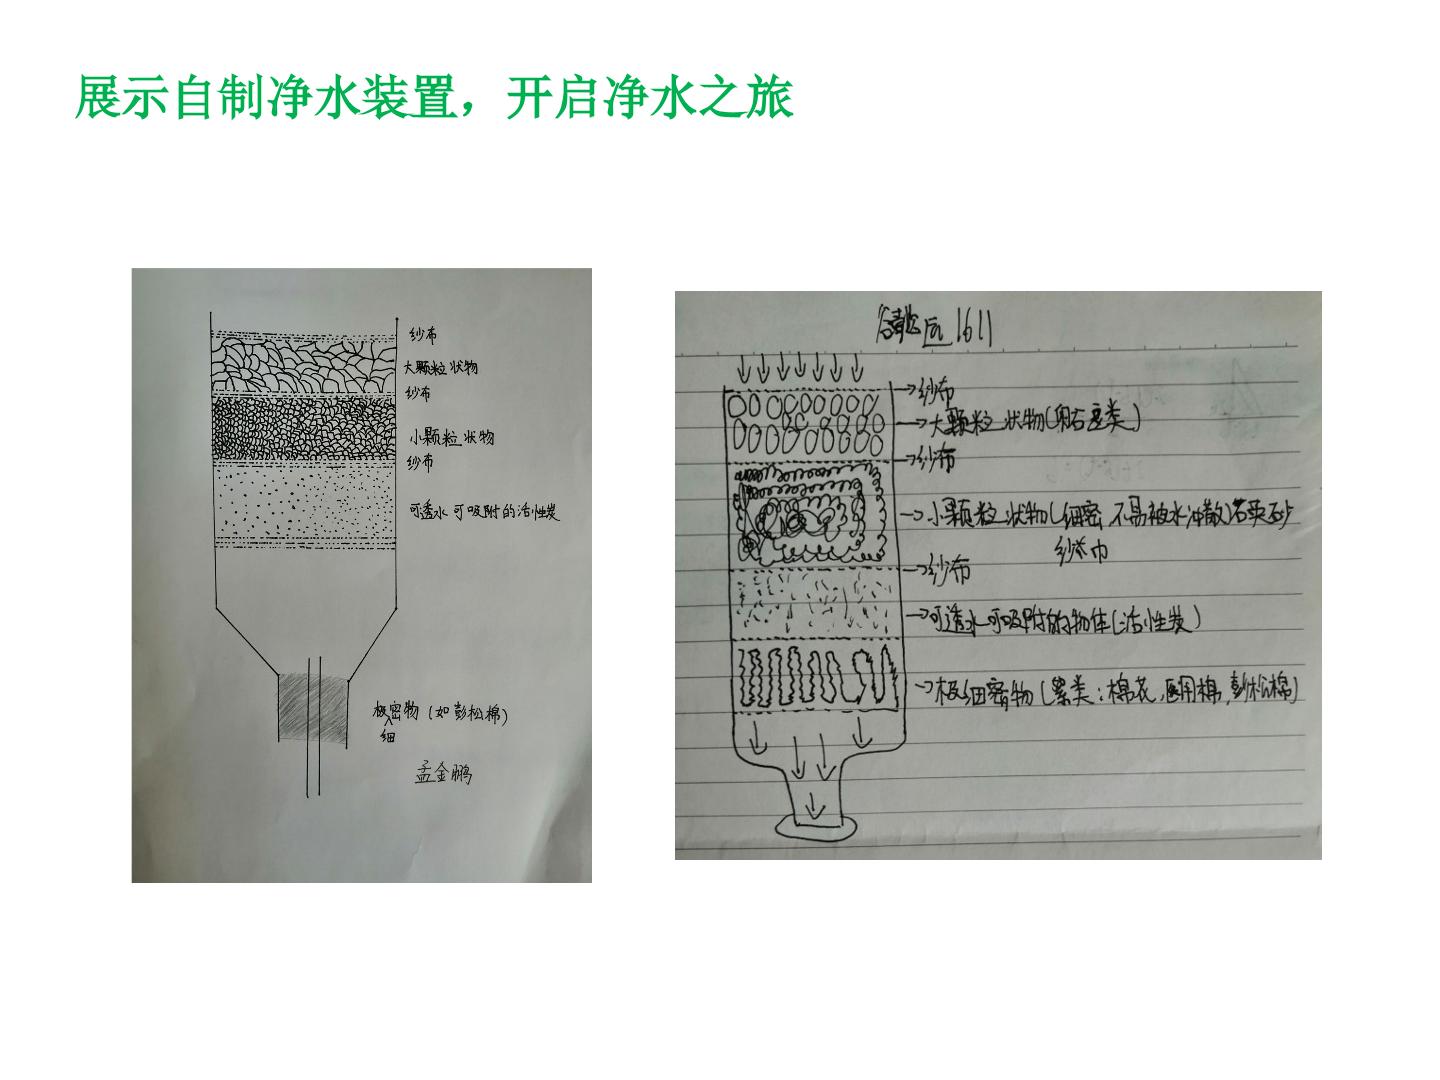 展示自制净水装置，开启净水之旅
纱布
大颗粒状物
纱布
小颗粒状物
纱布
可透水可吸附的活性炭
极密物（如彭松棉）
细
孟金鹏
1611
纱布
大颗粒状物
纱布
小颗粒状物（细密，不易被水冲散）
纱布
可透水可吸附的物体（活性炭）
极细密物（絮类：棉花，医用棉，彭松棉）